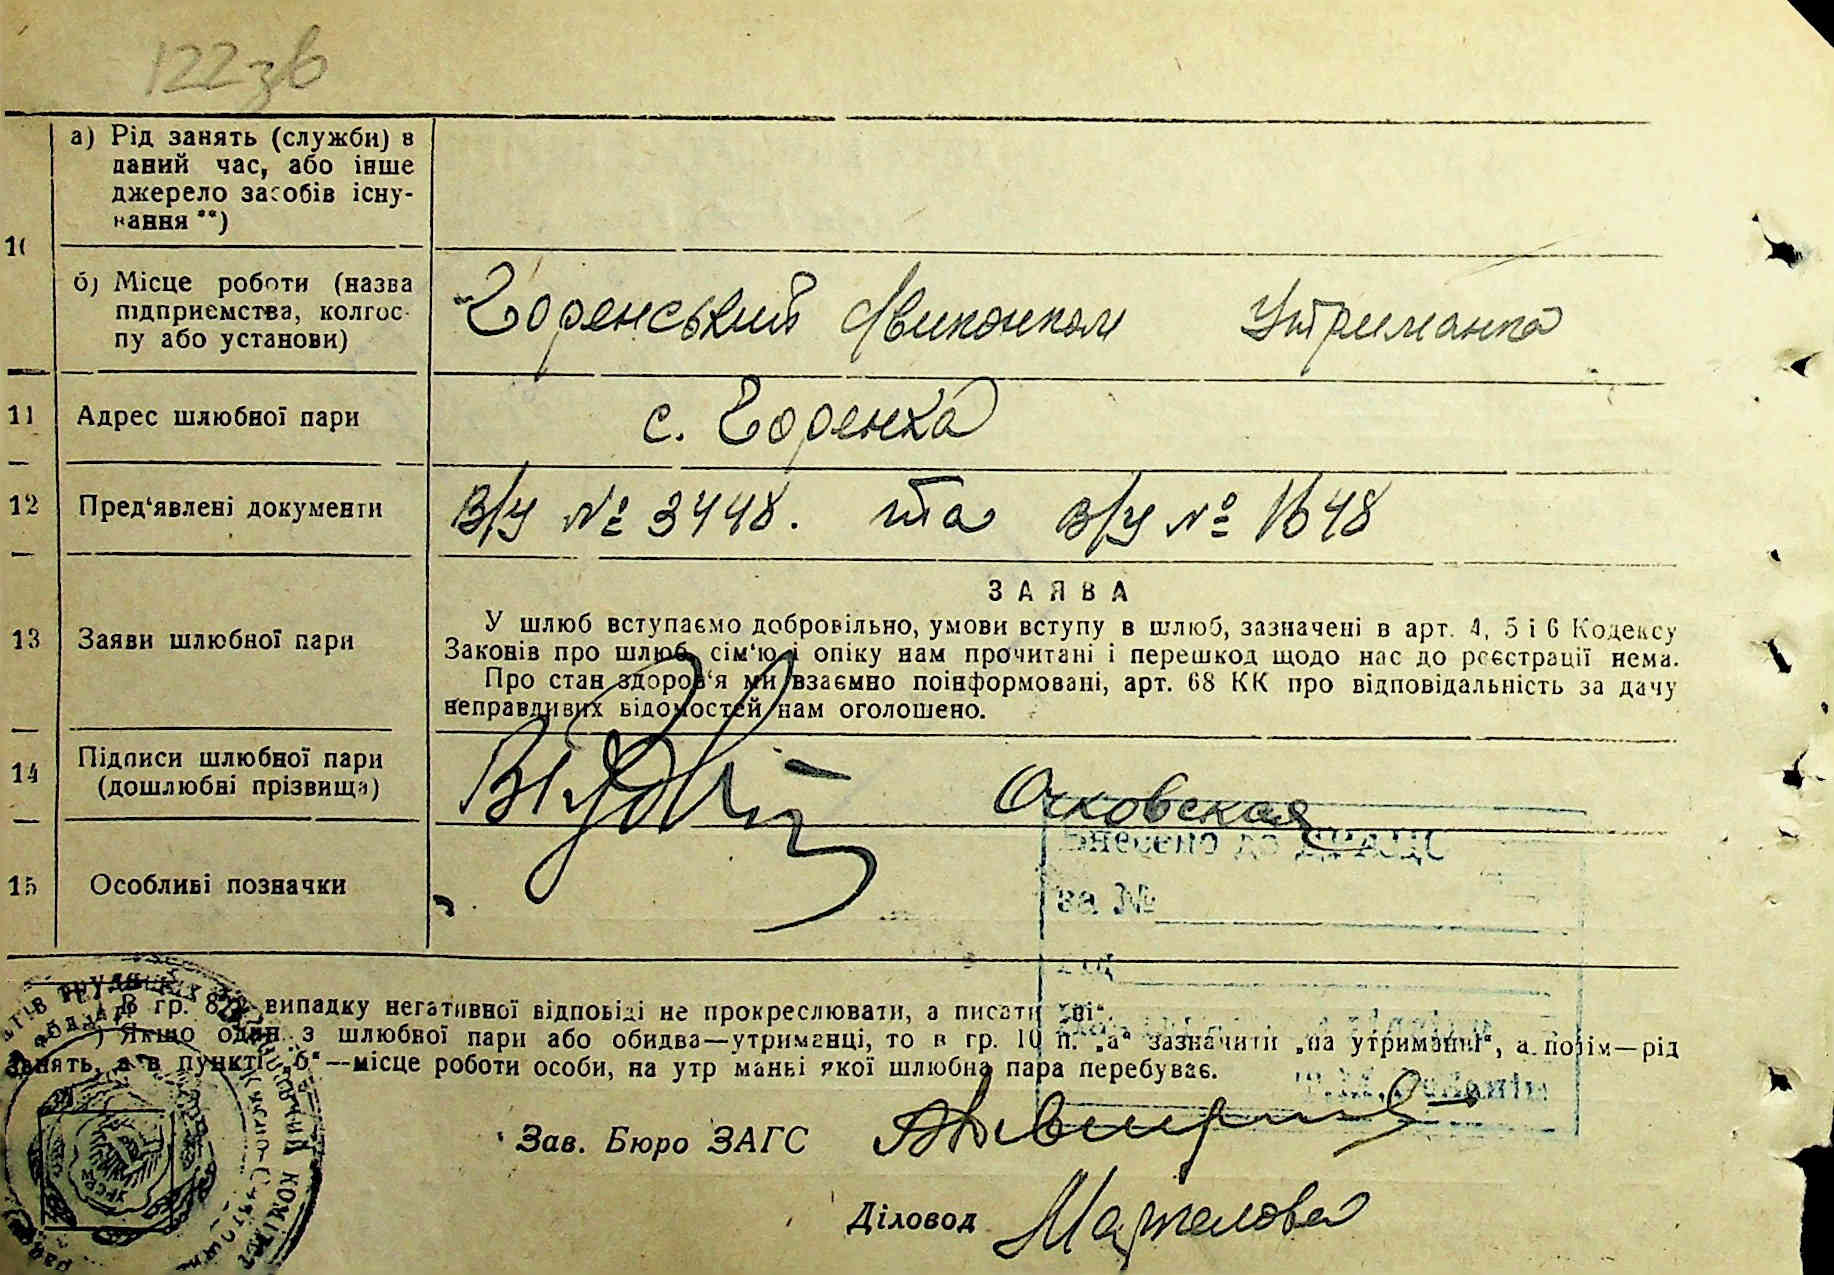 122 зв
10
а) Рід занять (служби) в
даний час, або інше
джерело засобів існу-
вання **)
б) Місце роботи (назва
підприємства, колгос-
пу або установи)
Горенський Утриманка
11 Адрес шлюбної пари с. Горенка
12 Пред‘явлені документи В/У № 3448. та в/у № 1648
ЗАЯВА
13 Заяви шлюбної пари
У шлюб вступаємо добровільно, умови вступу в шлюб, зазначені в арт. 4, 5 і 6 Кодексу
Законів про шлюб, сім‘ю і опіку нам прочитані і перешкод щодо нас до реєстрації нема.
Про стан здоров‘я ми взаємно поінформовані, арт. 68 КК про відповідальність за дачу
неправдивих відомостей нам оголошено.
14 Підписи шлюбної пари
(дошлюбні прізвища)
Очковская
Внесено до ДРАЦС
15 Особливі позначки
за №
від
) В гр. 8 у випадку негативної відповіді не прокреслювати, а писати „ні“.
) Якщо один з шлюбної пари або обидва—утриманці, то в гр. 10 п. „а“ зазначити „на утриманні“, а потім—рід
занять, а в пункті „б“—місце роботи особи, на утриманні якої шлюбна пара перебуває.
Зав. Бюро ЗАГС
Діловод